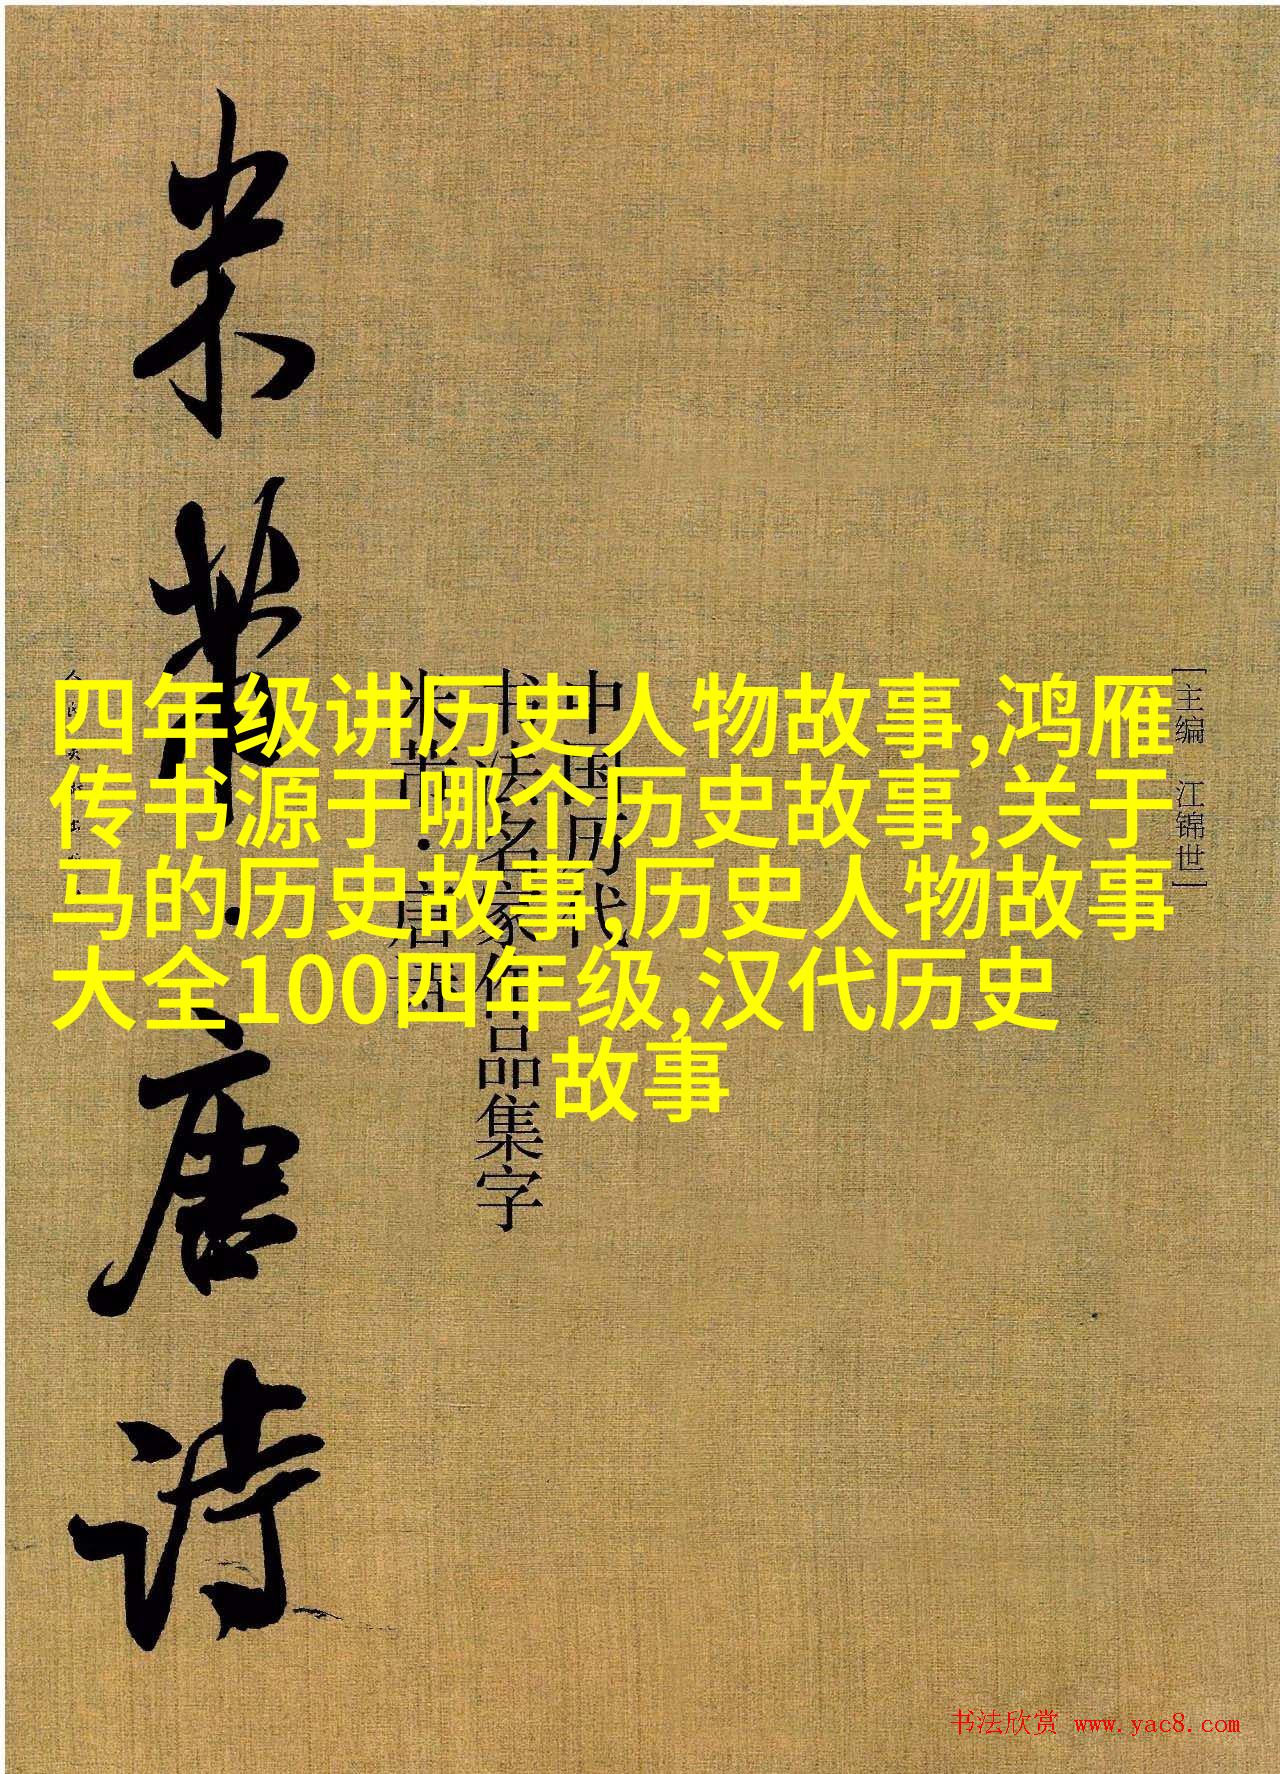 四年级讲历史人物故事,鸿雁
传书源于哪个历史故事,关于
马的历史故事,历史人物故事
大全100四年级,汉代历史
故事
[主编 江锦世]
中国历代
书法名家作品集字
米芾·唐诗
米芾·唐诗
书法欣赏 www.yac8.com